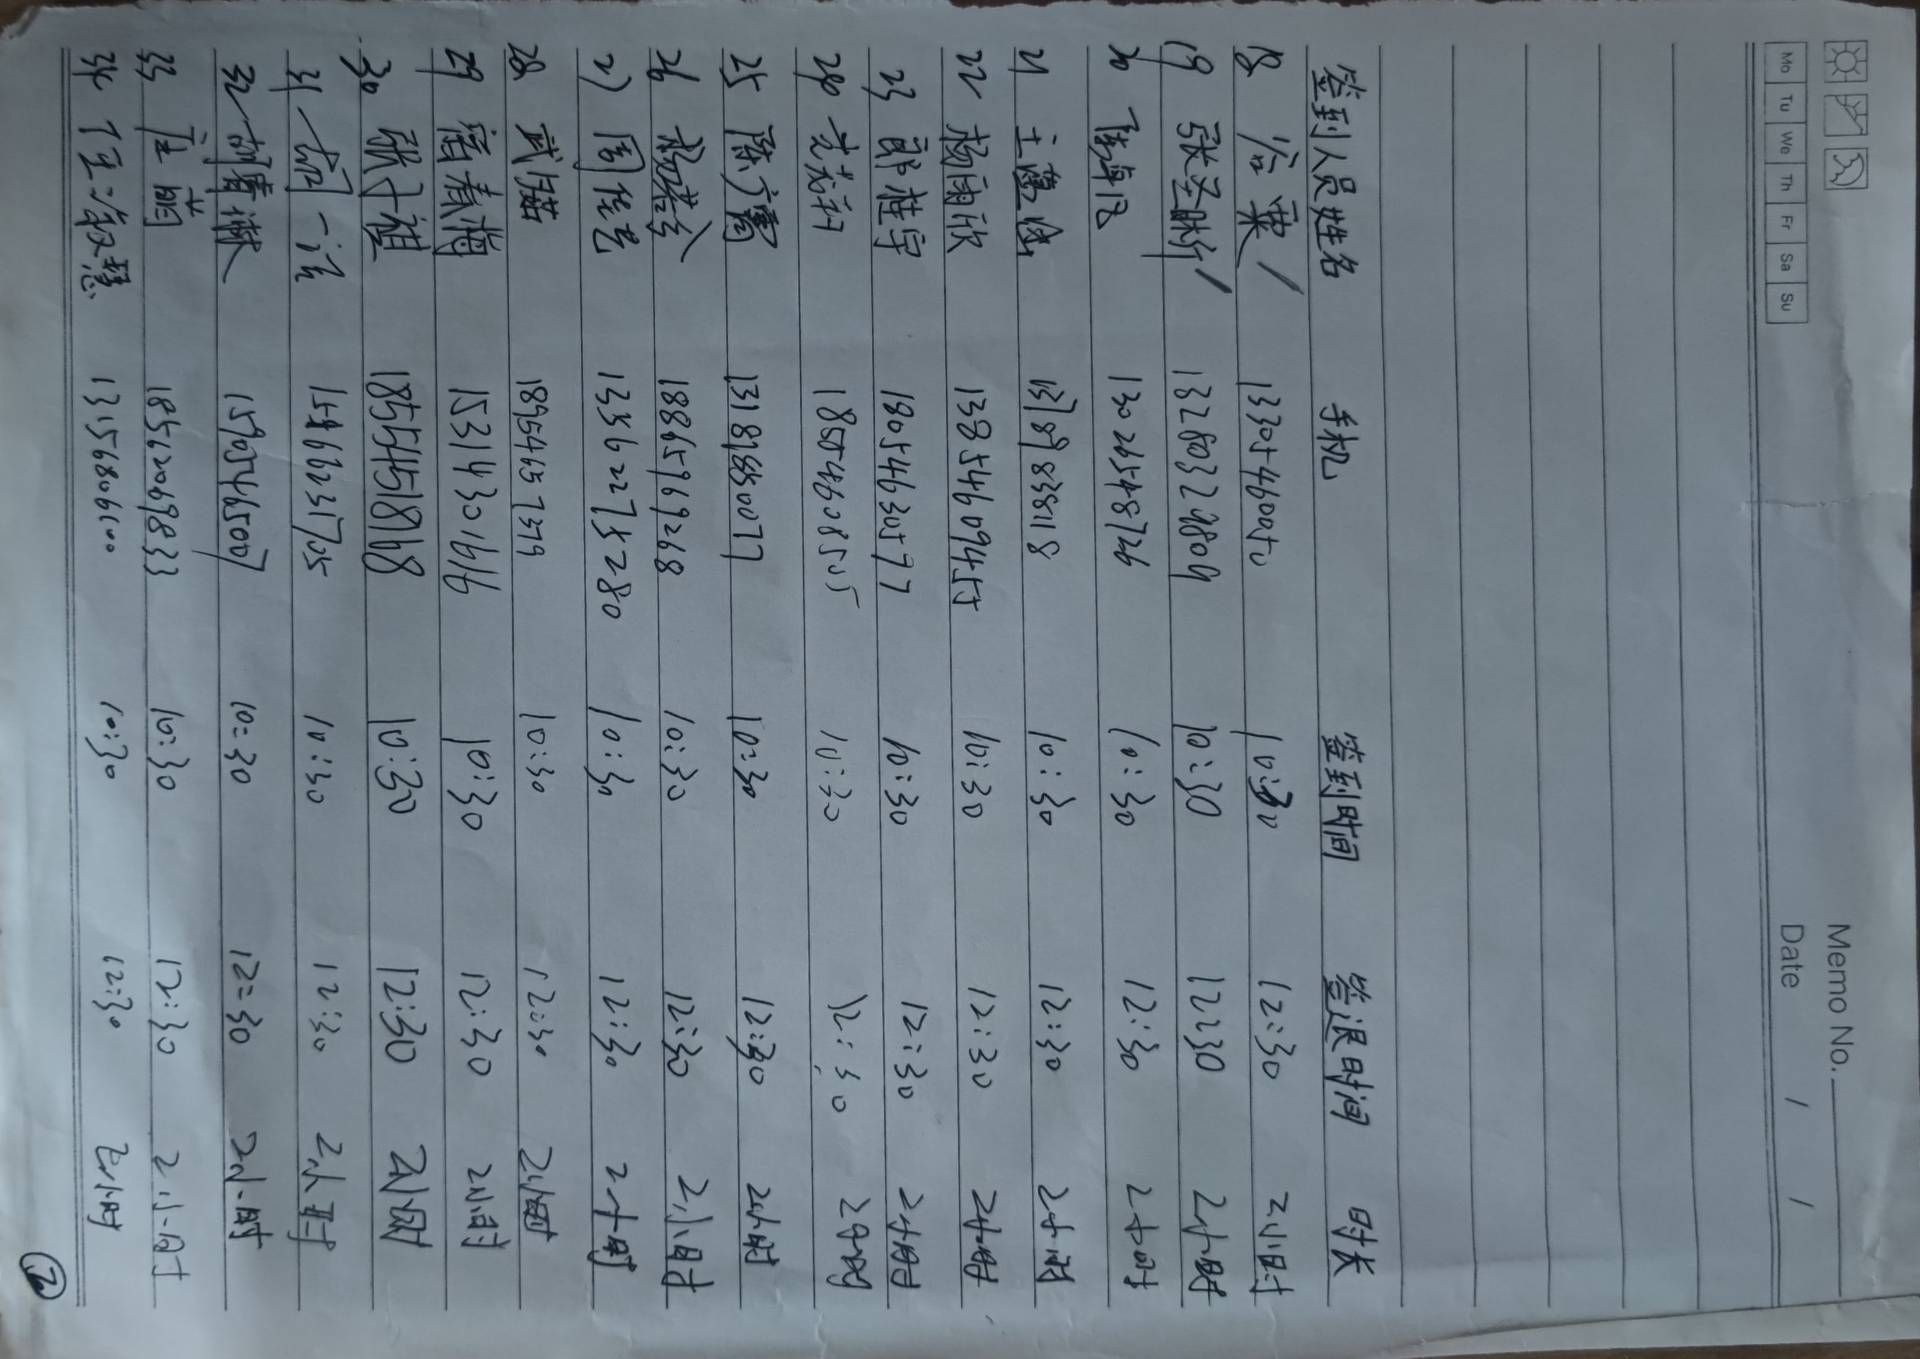 Memo No.
Mo Tu We Th Fr Sa Su Date / /
签到人员姓名 手机 签到时间 签退时间 时长
18 13305460050 10:30 12:30 2小时
19 张圣昕 13280329809 10:30 12:30 2小时
20 13026548726 10:30 12:30 2小时
21 13789838818 10:30 12:30 2小时
22 杨雨欣 13854609455 10:30 12:30 2小时
23 郭桂宇 18054630577 10:30 12:30 2小时
24 18554608505 10:30 12:30 2小时
25 陈广震 13181988007 10:30 12:30 2小时
26 杨若 18865969268 10:30 12:30 2小时
27 周佳 13562275280 10:30 12:30 2小时
28 武诺 18954637379 10:30 12:30 2小时
29 春梅 15314301616 10:30 12:30 2小时
30 张子祖 18554518168 10:30 12:30 2小时
31 一诺 15866231705 10:30 12:30 2小时
32 胡 15905465007 10:30 12:30 2小时
33 明 18562069833 10:30 12:30 2小时
34 13156806100 10:30 12:30 2小时